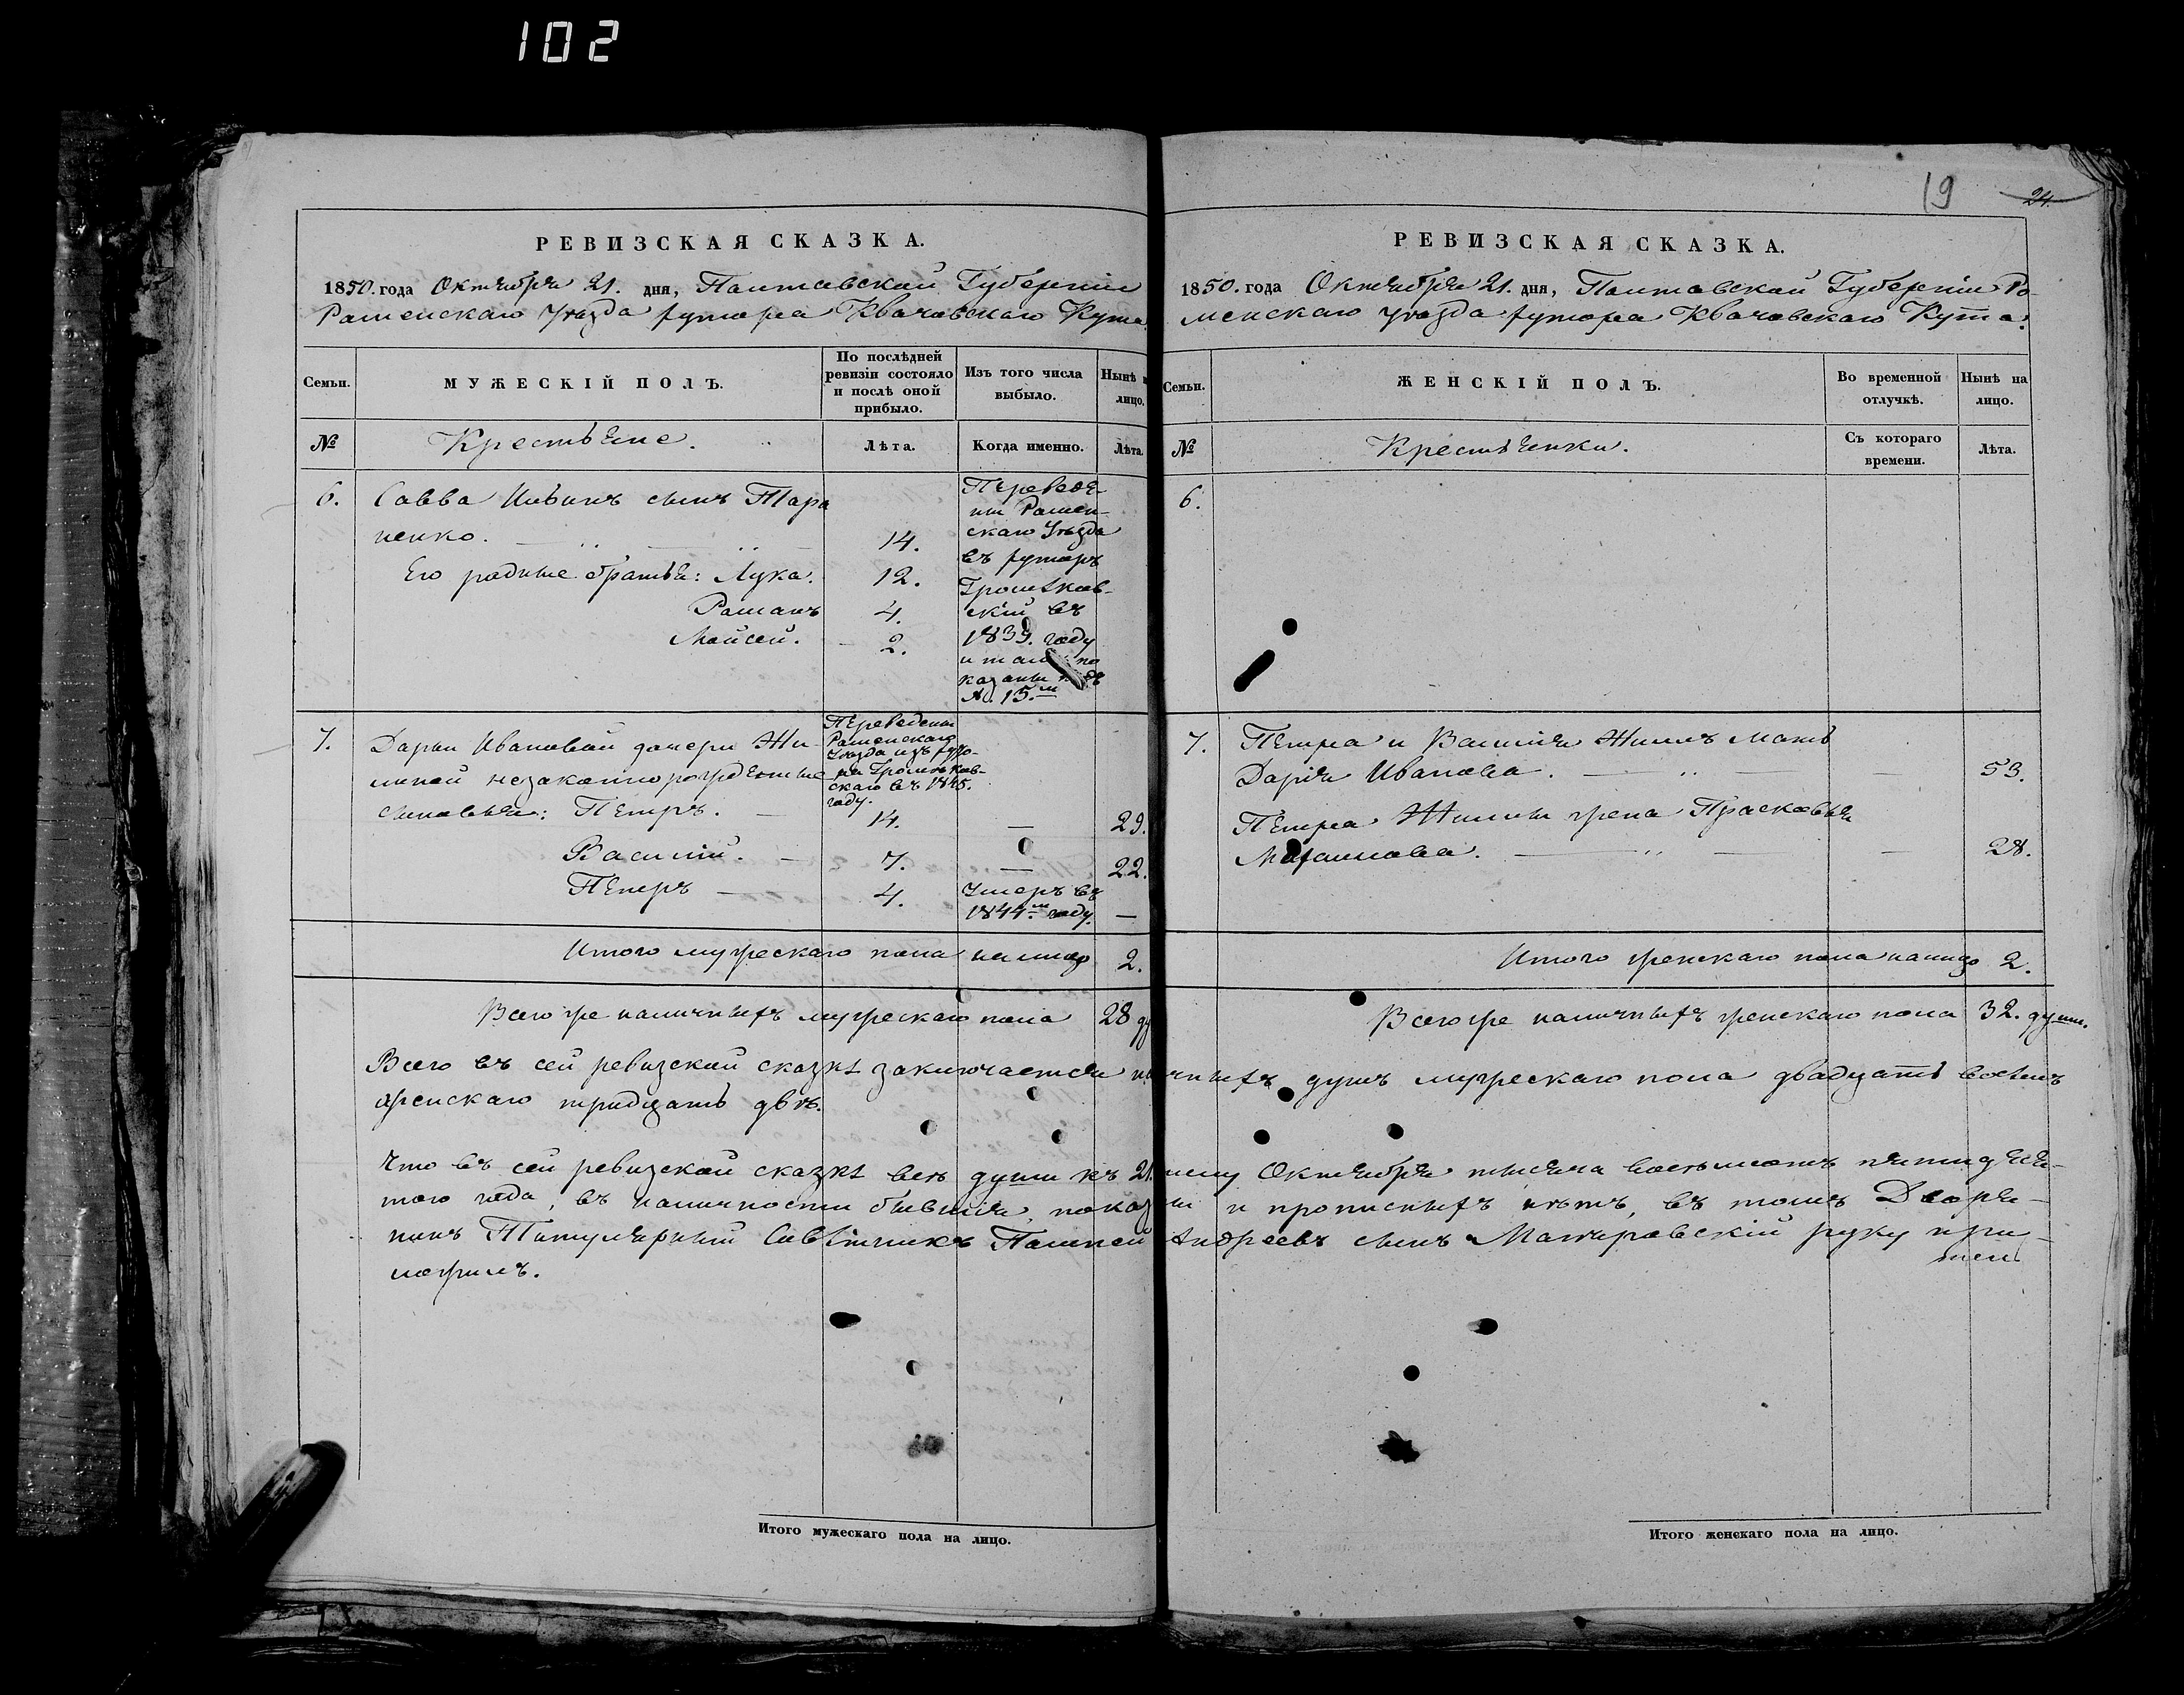 102
РЕВИЗСКАЯ СКАЗКА.
1850. года Октября 21. дня, Полтавской Губерніи
Роменскаго Уѣзда хутора Квачовскаго Кута
Семьи.
МУЖЕСКІЙ ПОЛЪ.
По послѣдней ревизіи состояло и послѣ оной прибыло.
Изъ того числа выбыло.
Нынѣ на лицо.
№
Крестьяне.
Лѣта.
Когда именно.
Лѣта.
6. Савва Ивановъ сынъ Тара
ненко. 14.
Его родные братья: Лука. 12.
Романъ 4.
Мойсей. 2.
Переведе-
ны Ромен-
скаго Уѣзда
въ хуторъ
скій въ
1839. году
и тамъ по
казаны подъ
№ 15.м
7. Дарьи Ивановой дочери Жи-
линой незаконнорожденные
сыновья: Петръ. 14. — 29.
Василій. — 7. — 22.
Петръ — 4. Умеръ въ
1844.м году. —
Переведены
Роменскаго
Уѣзда изъ хуто-
ра
скаго въ 1845.
году.
Итого мужескаго пола на лицо 2.
Всего же наличныхъ мужескаго пола 28 ду
19
24.
РЕВИЗСКАЯ СКАЗКА.
1850. года Октября 21. дня, Полтавской Губерніи Ро-
менскаго уѣзда хутора Квачовскаго Кута.
Семьи.
ЖЕНСКІЙ ПОЛЪ.
Во временной отлучкѣ.
Нынѣ на лицо.
№
Крестьянки.
Съ котораго времени.
Лѣта.
6.
7. Петра и Василія Жилъ мать
Дарія Иванова. — 53.
Петра Жилы жена Прасковья
28.
Итого женскаго пола на лицо 2.
Всего же наличныхъ женскаго пола 32. душ.
Всего въ сей ревизской сказкѣ заключается наличныхъ душъ мужескаго пола двадцать восемь
женскаго тридцать двѣ.
Что въ сей ревизской сказкѣ всѣ души къ 21. чему Октября тысяча восемьсотъ пятидеся-
того года, въ наличности бывшія, показаны и прописныхъ нѣтъ, въ томъ Дворя-
нинъ Титулярный Совѣтникъ Андреевъ сынъ руку при-
ложилъ.
Итого мужескаго пола на лицо.
Итого женскаго пола на лицо.